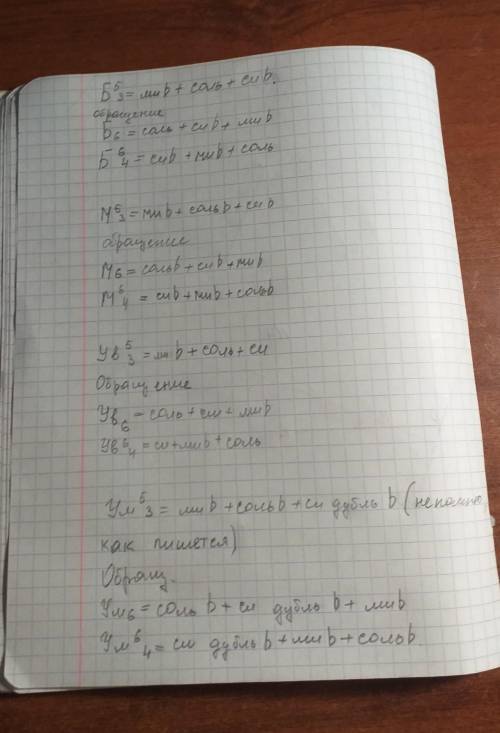 Б⁵₃ = миb + соль + сиb.
обращение
Б₆ = соль + сиb + миb
Б⁶₄ = сиb + миb + соль
М⁵₃ = миb + сольb + сиb
обращение
М₆ = сольb + сиb + миb
М⁶₄ = сиb + миb + сольb
Ув⁵₃ = миb + соль + си
Обращение
Ув₆ = соль + си + миb
Ув⁶₄ = си + миb + соль
Ум⁵₃ = миb + сольb + си дубль b (непомню
как пишется)
Обращ.
Ум₆ = соль b + си дубль b + миb
Ум⁶₄ = си дубль b + миb + сольb.